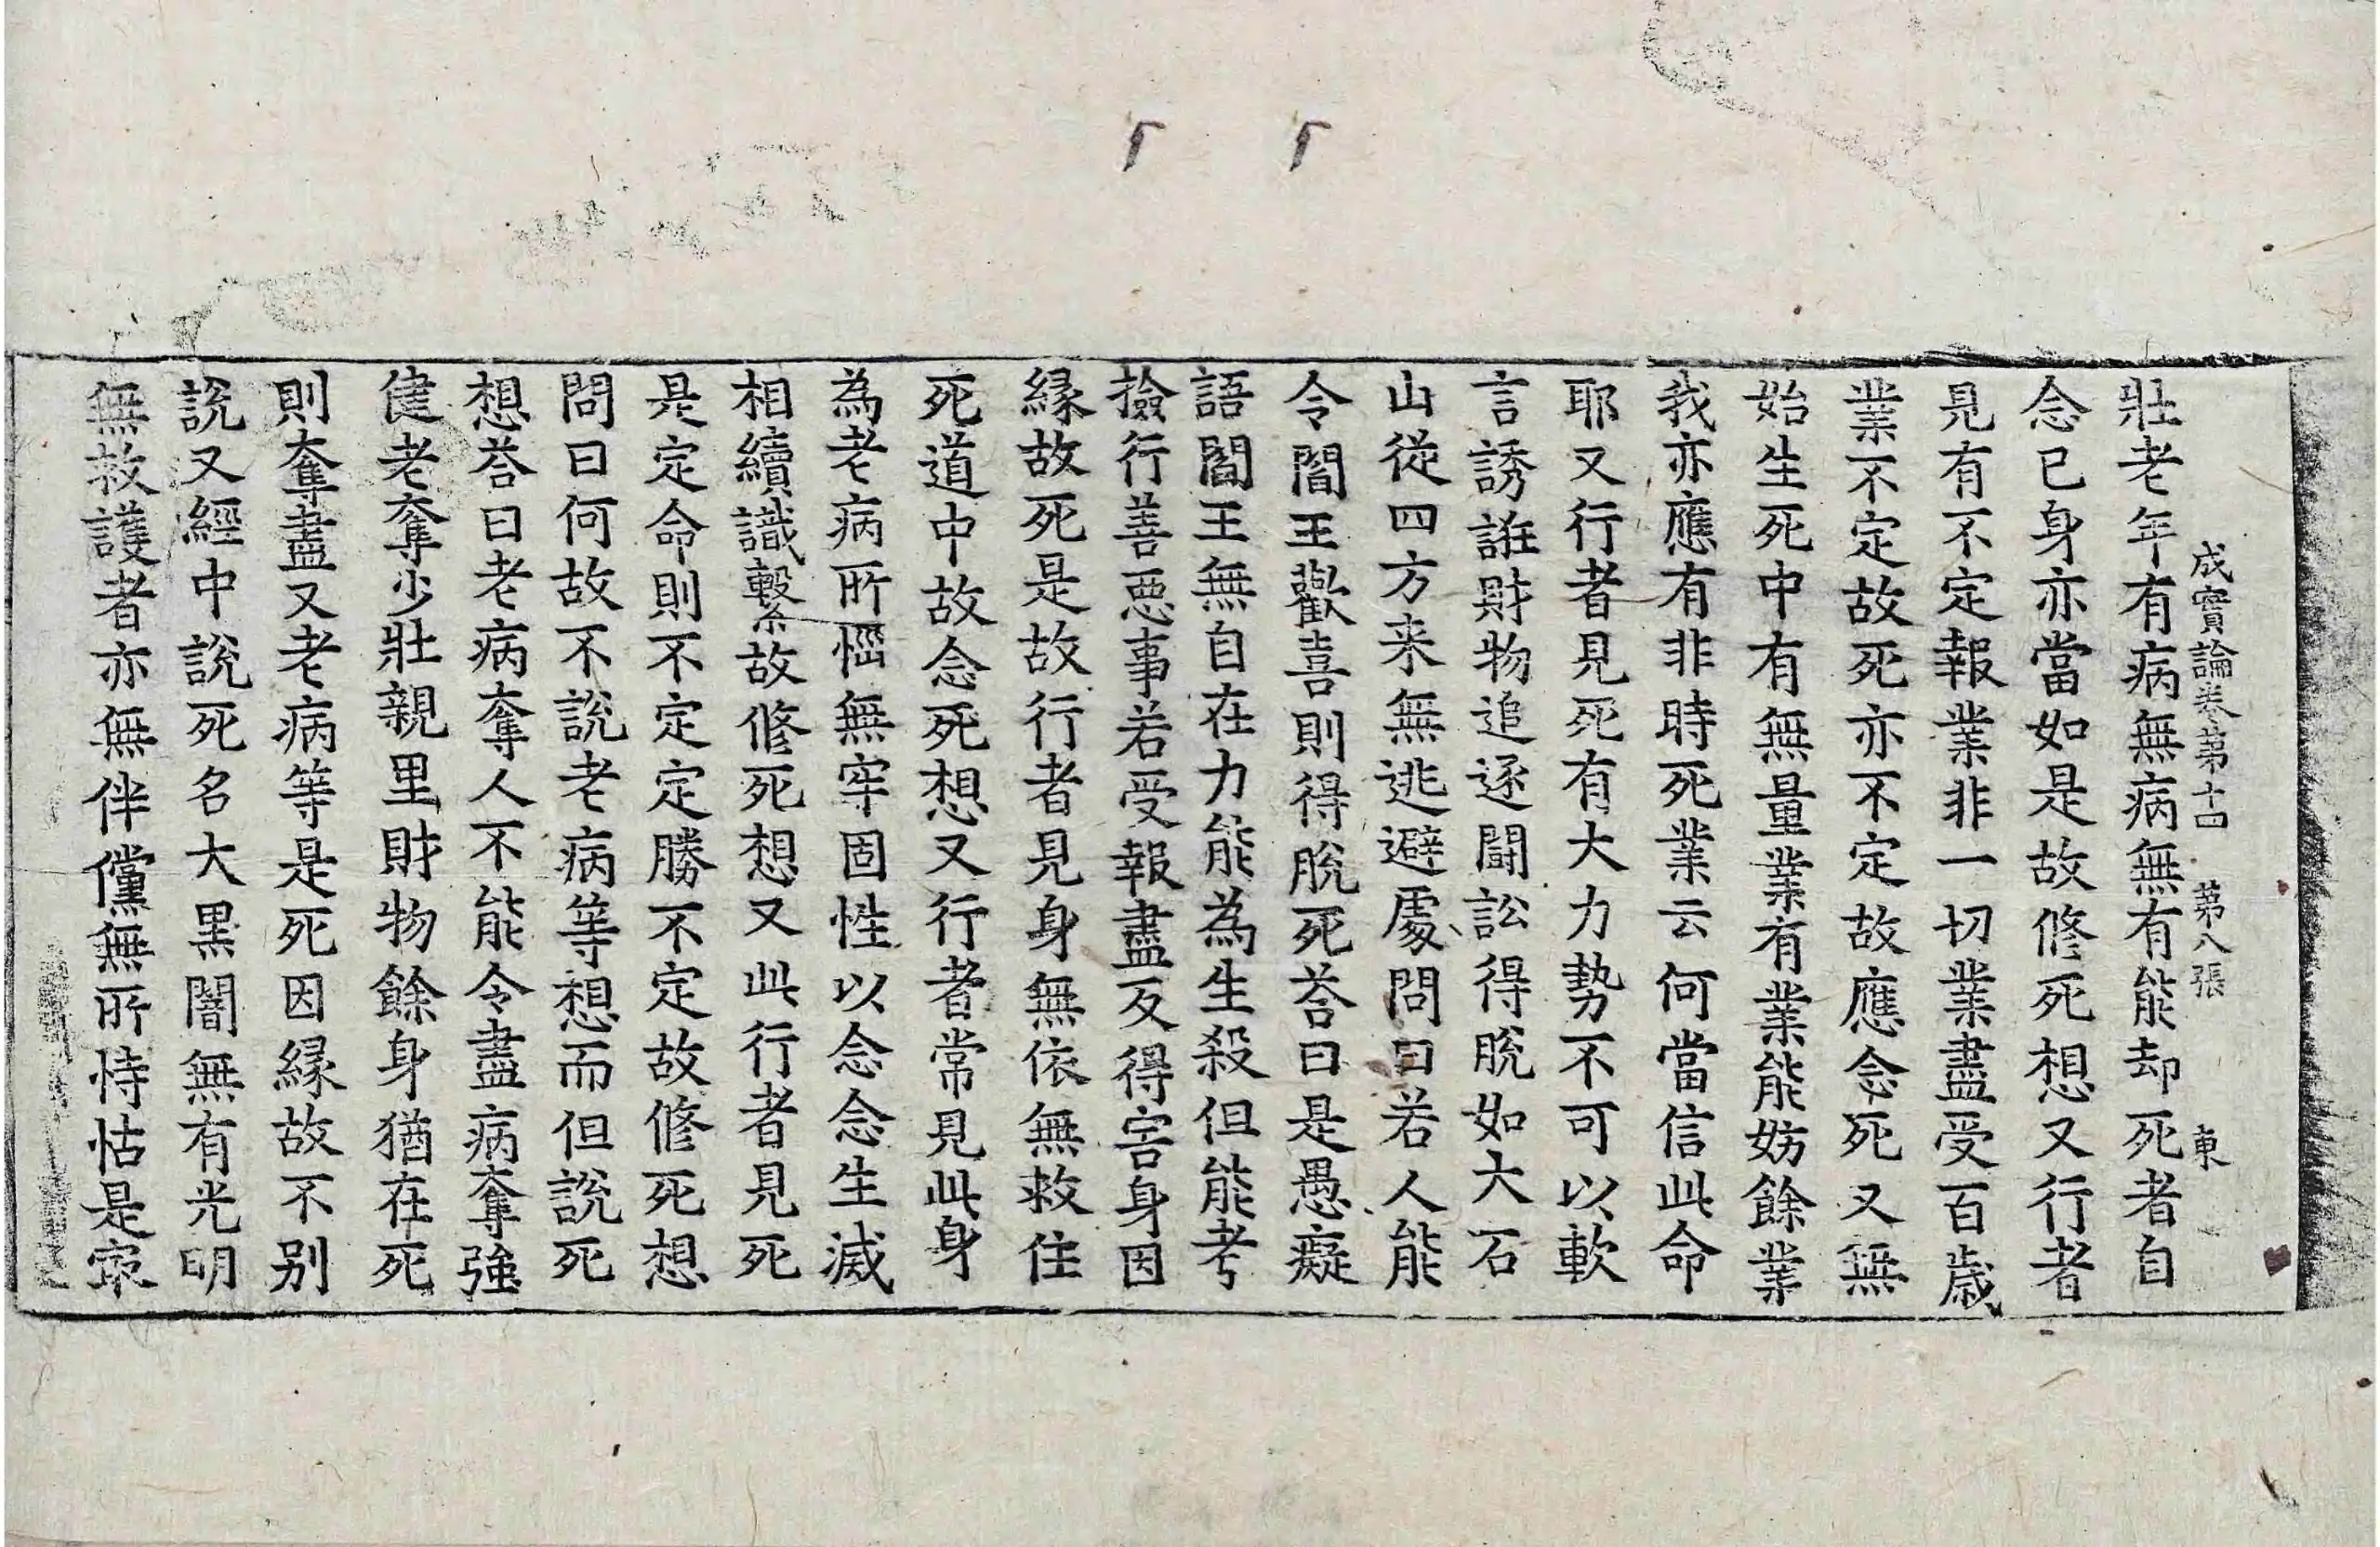 成實論卷第十四 第八張 東
壯老年有病無病無有能却死者自
念已身亦當如是故修死想又行者
見有不定報業非一切業盡受百歲
業不定故死亦不定故應念死又無
始生死中有無量業有業能妨餘業
我亦應有非時死業云何當信此命
耶又行者見死有大力勢不可以軟
言誘誑財物追逐鬪訟得脫如大石
山從四方来無逃避處問曰若人能
令閻王歡喜則得脫死荅曰是愚癡
語閻王無自在力能為生殺但能考
撿行善惡事若受報盡反得害身因
緣故死是故行者見身無依無救住
死道中故念死想又行者常見此身
為老病所惱無牢固性以念念生滅
相續識繫故修死想又此行者見死
是定命則不定定勝不定故修死想
問曰何故不說老病等想而但說死
想荅曰老病奪人不能令盡病奪強
健老奪少壯親里財物餘身猶在死
則奪盡又老病等是死因緣故不別
說又經中說死名大黑闇無有光明
無救護者亦無伴儻無所恃怙是㝡